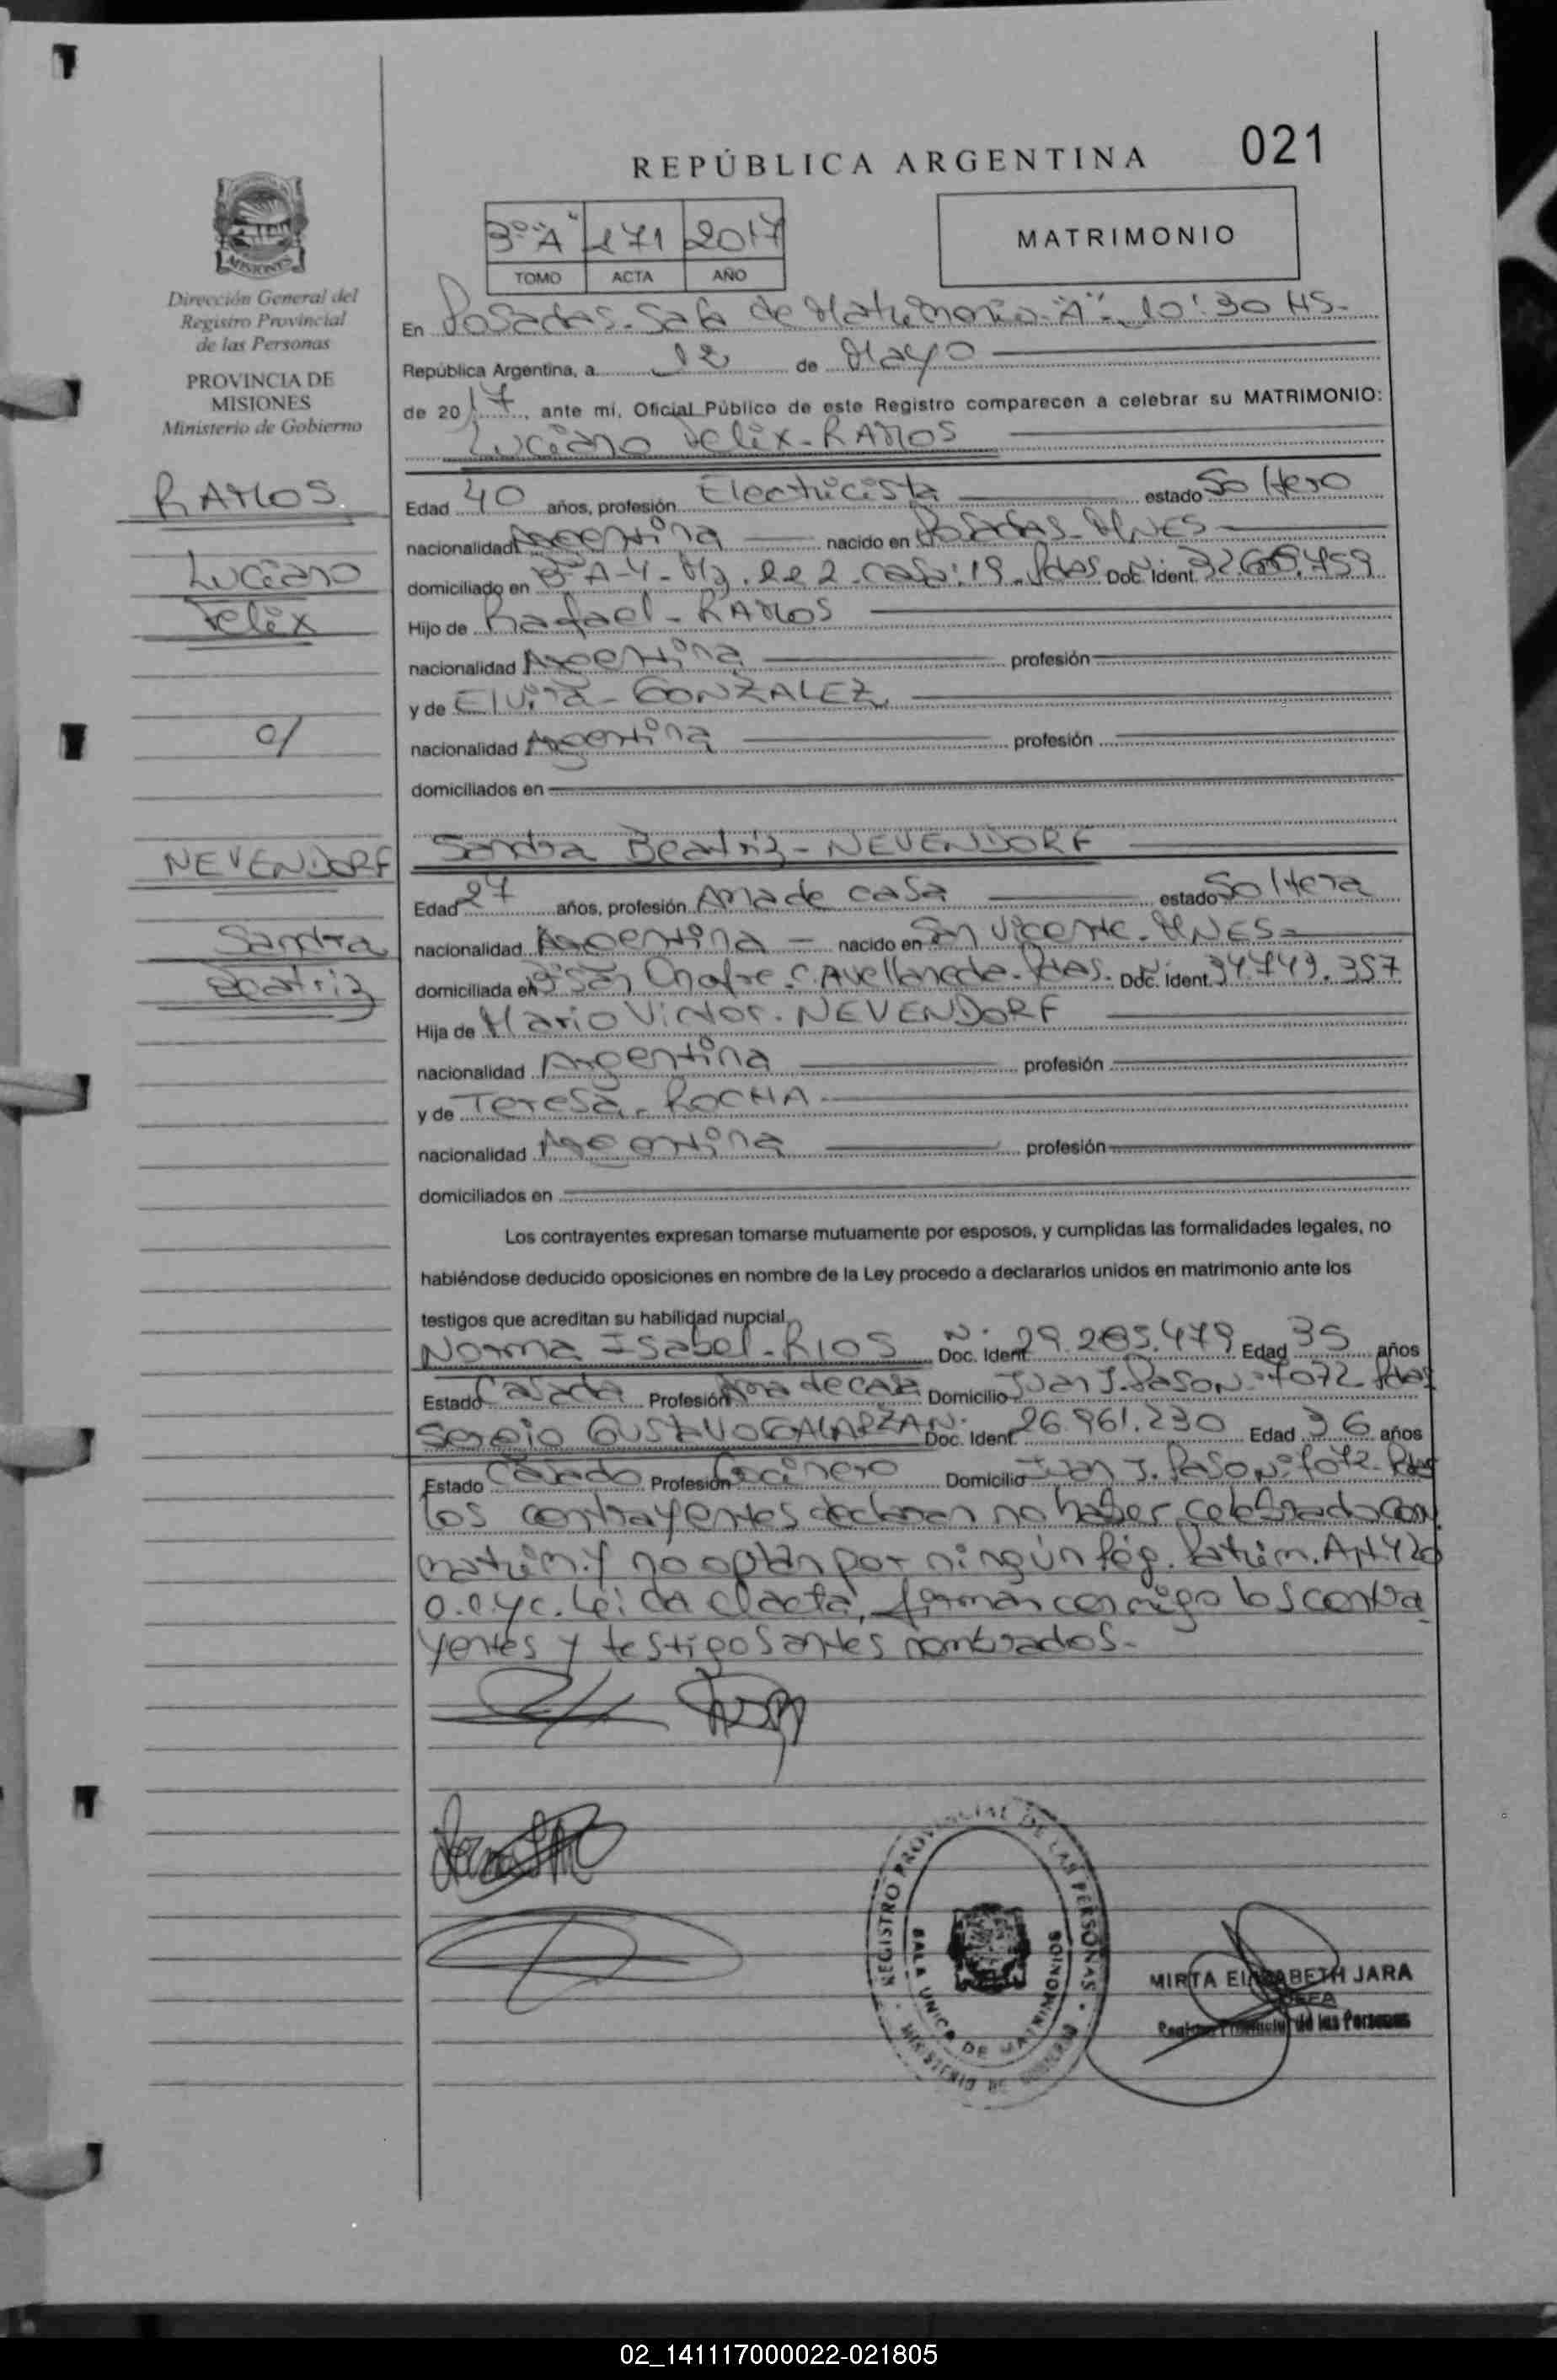 021
REPÚBLICA ARGENTINA
3º "A" 171 2017
TOMO ACTA AÑO
MATRIMONIO
MISIONES
Dirección General del
Registro Provincial
de las Personas
PROVINCIA DE
MISIONES
Ministerio de Gobierno
En Posadas. Sala de Matrimonio "A" 10:30 HS-
República Argentina, a 12 de Mayo
de 2017, ante mí, Oficial Público de este Registro comparecen a celebrar su MATRIMONIO:
Luciano Felix - RAMOS
RAMOS
Luciano
Felix
Edad 40 años, profesión Electricista estado Soltero
nacionalidad Argentina nacido en Posadas - MNES
domiciliado en Bº A-4 - Mz. casa: 19 - Pdas Doc. Ident.
Hijo de Rafael - RAMOS
nacionalidad Argentina profesión
y de Elvira - GONZALEZ
c/
nacionalidad Argentina profesión
domiciliados en
Sandra Beatriz - NEVENDORF
NEVENDORF
Sandra
Beatriz
Edad 27 años, profesión Ama de casa estado Soltera
nacionalidad Argentina - nacido en San Vicente - MNES -
domiciliada en Avellaneda - Pdas. Doc. Ident. 34.749.357
Hija de Mario Victor - NEVENDORF
nacionalidad Argentina profesión
y de Teresa - ROCHA
nacionalidad Argentina profesión
domiciliados en
Los contrayentes expresan tomarse mutuamente por esposos, y cumplidas las formalidades legales, no
habiéndose deducido oposiciones en nombre de la Ley procedo a declararlos unidos en matrimonio ante los
testigos que acreditan su habilidad nupcial
Norma Isabel - RIOS Doc. Ident. Nº 29.285.479 Edad 35 años
Estado Casada Profesión Ama de casa Domicilio Juan J. Paso Nº 7072 - Pdas
Sergio GUSTAVO GALARZA Nº Doc. Ident. 26.961.230 Edad 36 años
Estado Casado Profesión Cocinero Domicilio Juan J. Paso Nº 7072 - Pdas
los contrayentes declaran no haber celebrado con
matrim. y no optan por ningún Rég. Patrim. Art. 420
C.C.y C. Leída el acta, firman conmigo los contra
yentes y testigos antes nombrados -
REGISTRO PROVINCIAL DE LAS PERSONAS
SALA UNICA DE MATRIMONIOS
MINISTERIO DE GOBIERNO
MIRTA ELIZABETH JARA
JEFA
Registro Provincial de las Personas
02_141117000022-021805